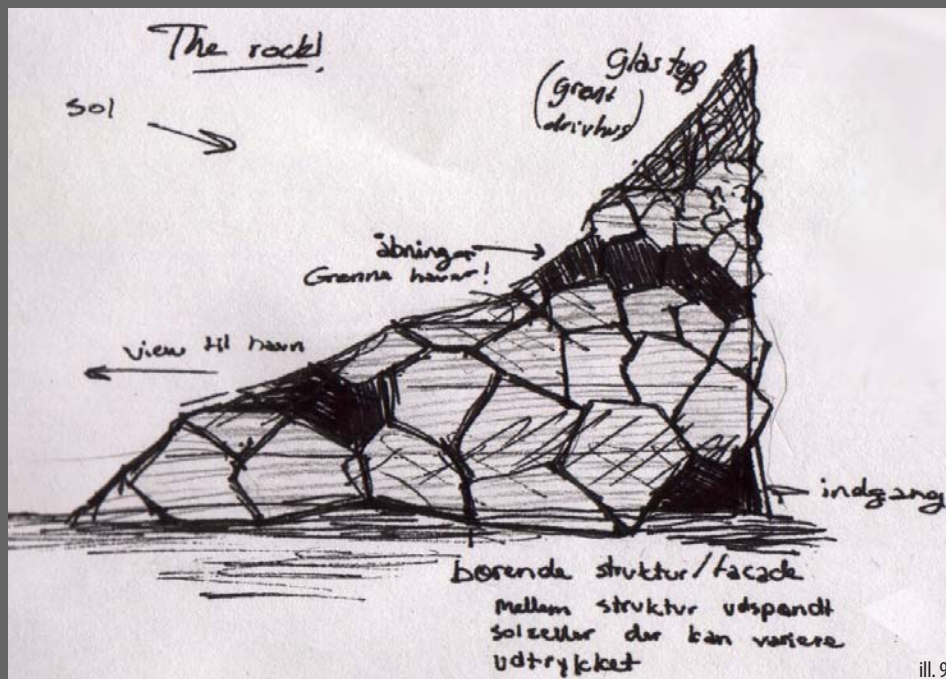 The rock!
sol
glas top
(grønt
drivhus)
åbninger
Grønne haver!
view til havn
indgang
bærende struktur/facade
mellem struktur udspændt
solceller der kan variere
udtrykket
ill. 9